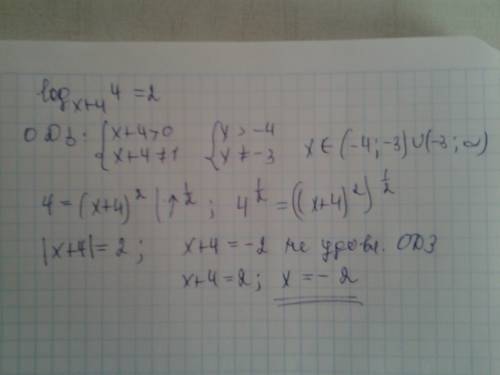 log_{x+4} 4 = 2
ОДЗ: { x+4>0   { x > -4   x ∈ (-4; -3) ∪ (-3; ∞)
{ x+4 ≠ 1   { x ≠ -3
4 = (x+4)^2 | ↑ ^{1/2} ; 4^{1/2} = ((x+4)^2)^{1/2}
|x+4| = 2 ; x+4 = -2 не удовл. ОДЗ
x+4 = 2 ; x = -2